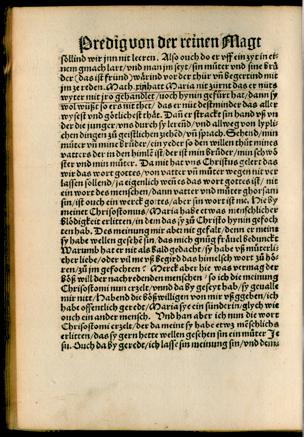 Predig von der reinen Magt
söllind wir jnn nit leeren. Also ouch do er vff ein zyt in ei
nem gmach lart / vnd man jm seyt / sin můter vnd sine brů
der (das ist fründ) wärind vor der thür vñ begertind mit
jm ze reden. Maria nit zürnd das er nüts
wyter mit jro gehandlet / noch hynin gefürt hat / dann sy
wol wüßt so ers nit thet / das er nüt destminder das aller
wysest vnd götlichest thäte. Dañ er strackt sin hand vß von
der die junger / vns durch sy lerend / vnd allweg von lyplichen
dingen zů geistlichen zehend / vñ sprach. Sehend / min
můter vñ mine brůder / ein yeder so den willen thůt mines
vatters der in den himlẽ ist / der ist min brůder / min schwö
ster / vnd min můter. Da mit hat vns Christus gelert das
wir das wort gottes / von vatter vñ můter wegen nit ver
lassen sollend / ja eigenlich wenn es das wort gottes ist / nit
ein wort des menschen / dann vatter vnd můter gehorsam
sin / ist ouch ein werck gottes / aber sin wort ist me. Hie by
meinet Chrisostomus / Maria habe etwas menschlicher
blödigkeit erlitten / in dem das sy zů Christo hynin gefoch
ten hab. Des meinung mir aber nit gefalt / denn er meint
sy habe wellen gesehẽ sin / das mich gnůg fräuel bedunckt
Warumb hat er nit als bald gedacht / sy habe vß můterli
cher liebe / oder vil me begird das himelsch wort zů hö-
ren / zů jm gefochten? Merck aber hie was vrtmag der
böß will der nachredenden menschen / so ich die meinung
Chrisostomi nun erzelt / vnnd da by geseyt hab / sy geualle
mir nitt / habend die bößwilligen von mir vßgeben / ich
habe offentlich geredt / Maria sye ein sünderin / glych wie
ouch ein ander mensch. Vnd han aber ich nun die wort
Chrisostomi erzelt / der da meint sy habe etwz mẽschlichs
erlitten / das sy gern hette wellen gesehen sin ein můter Je
su. Ouch da by geredt / ich lasse sin meinung sin / vnd dem